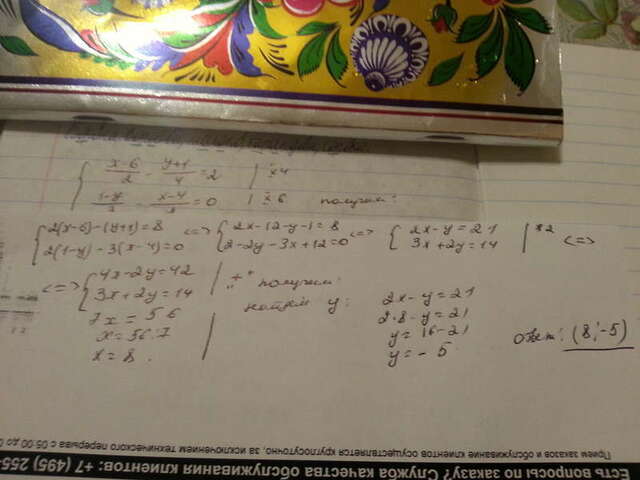 { x-6/2 - y+1/4 = 2 | x4
{ 1-y/3 - x-4/2 = 0 | x 6 получим:
{ 2(x-6)-(y+1)=8 <=> { 2x-12-y-1=8 <=> { 2x-y=21 | *2 <=>
{ 2(1-y)-3(x-4)=0 { 2-2y-3x+12=0 { 3x+2y=14
<=> { 4x-2y=42 | "+" получим:
{ 3x+2y=14 найдем y: 2x-y=21
7x=56 2·8-y=21
x=56:7 y=16-21 Ответ: (8;-5)
x=8. y=-5
Прием заказов и обслуживание клиентов осуществляется круглосуточно, за исключением технического перерыва с 05:00 до
Есть вопросы по заказу? Служба качества обслуживания клиентов: +7 (495) 255-